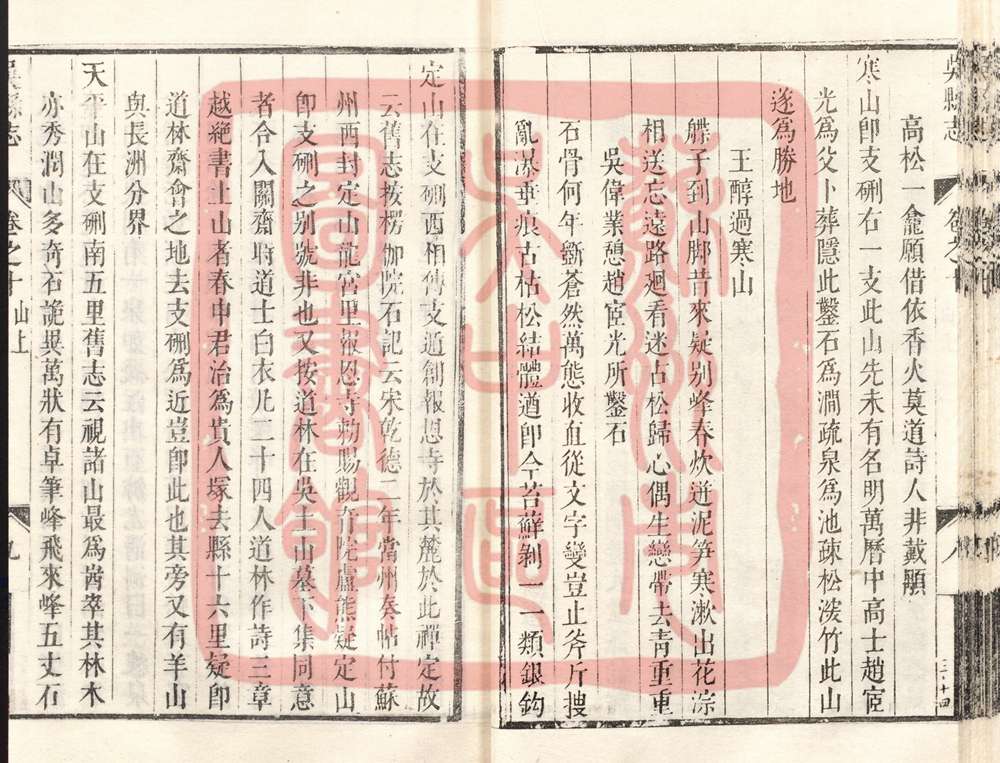 吳縣志
卷之十
八
三十四
高松一龕願借依香火莫道詩人非戴顒
寒山卽支硎右一支此山先未有名明萬曆中高士趙宧
光爲父卜葬隱此鑿石爲澗疏泉爲池疎松潑竹此山
遂爲勝地
王醇過寒山
艓子到山脚昔來疑别峰春炊迸泥笋寒漱出花淙
相送忘遠路迴看迷古松歸心偶生戀帶去靑重重
吳偉業憩趙宧光所鑿石
石骨何年斷蒼然萬態收直從文字變豈止斧斤搜
亂瀑垂痕古枯松結體遒卽今苔蘚剝一一類銀鈎
定山在支硎西相傳支遁創報恩寺於其麓於此禪定故
云舊志按楞伽院石記云宋乾德二年當州奏帖付蘇
州西封定山龍宮里報恩寺勅賜觀音院盧熊疑定山
卽支硎之别號非也又按道林在吳土山墓下集同意
者合入關齋時道士白衣凡二十四人道林作詩三章
越絶書土山者春申君治爲貴人塚去縣十六里疑卽
道林齋會之地去支硎爲近豈卽此也其旁又有羊山
與長洲分界
天平山在支硎南五里舊志云視諸山最爲崷崒其林木
亦秀潤山多奇石詭異萬狀有卓筆峰飛來峰五丈石
吳縣志
卷之十 山上
九
蘇州市
人中圖
圖書館